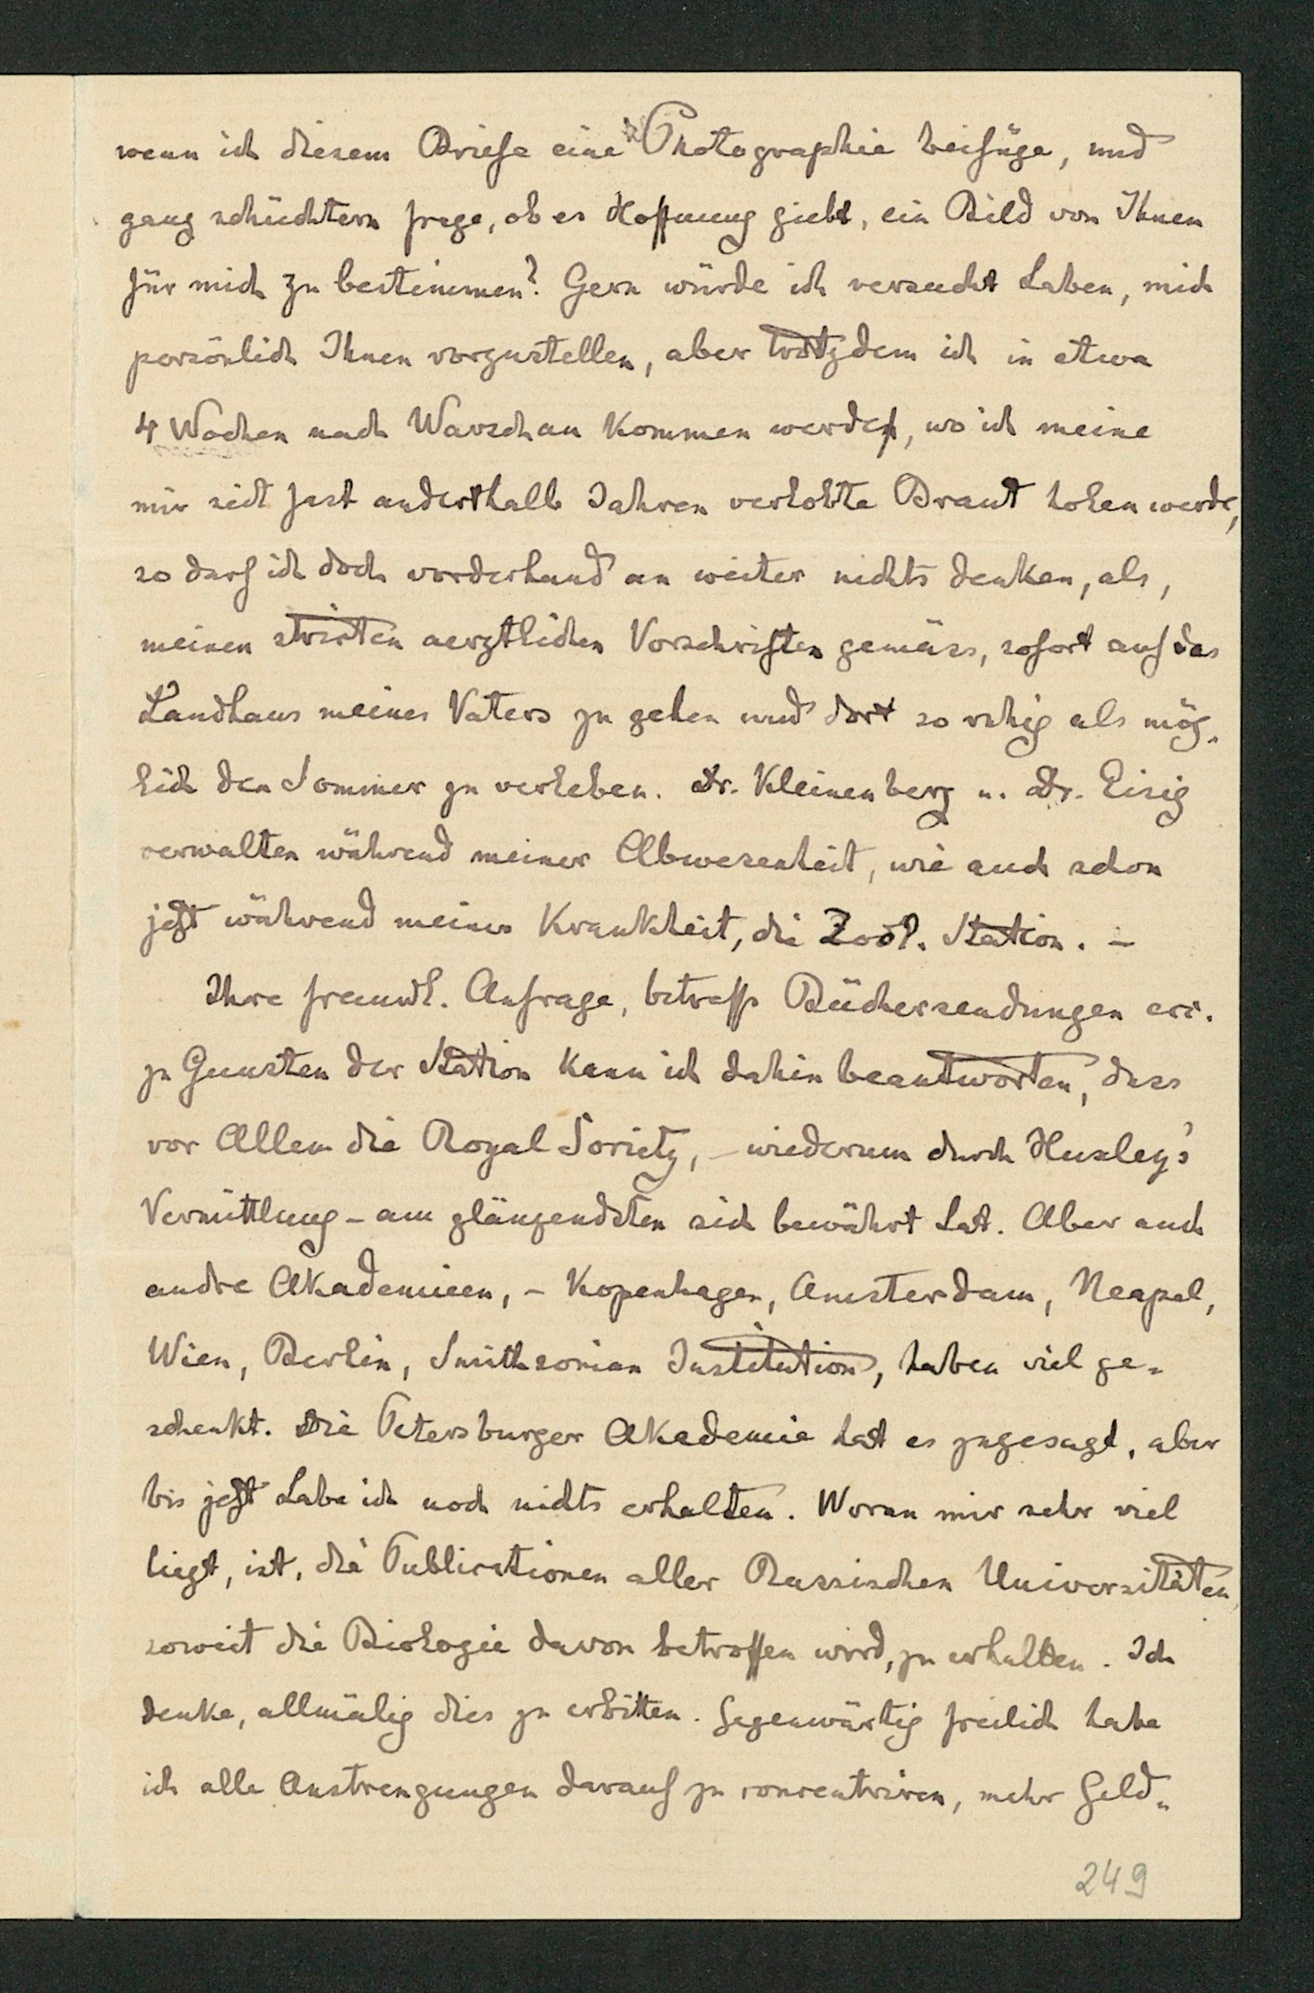 wenn ich diesem Briefe eine Photographie beifüge, und
ganz schüchtern frage, ob es Hoffnung giebt, ein Bild von Ihnen
für mich zu bestimmen? Gern würde ich versucht haben, mich
persönlich Ihnen vorzustellen, aber trotzdem ich in etwa
4 Wochen nach Warschau kommen werde, wo ich meine
mir seit fast anderthalb Jahren verlobte Braut holen werde,
so darf ich doch vorderhand an weiter nichts denken, als,
meinen strikten aerztlichen Vorschriften gemäss, sofort auf das
Landhaus meines Vaters zu gehen und dort so ruhig als mög-
lich den Sommer zu verleben. Dr. Kleinenberg u. Dr. Eisig
verwalten während meiner Abwesenheit, wie auch schon
jetzt während meiner Krankheit, die Zool. Station. –
Ihre freundl. Anfrage, betreffs Büchersendungen etc.
zu Gunsten der Station kann ich dahin beantworten, dass
vor Allem die Royal Society, – wiederum durch Huxley's
Vermittlung – am glänzendsten sich bewährt hat. Aber auch
andre Akademieen, – Kopenhagen, Amsterdam, Neapel,
Wien, Berlin, Smithsonian Institution, haben viel ge-
schenkt. Die Petersburger Akademie hat es zugesagt, aber
bis jetzt habe ich noch nichts erhalten. Woran mir sehr viel
liegt, ist, die Publicationen aller Russischen Universitäten,
soweit die Biologie davon betroffen wird, zu erhalten. Ich
denke, allmälig dies zu erbitten. Gegenwärtig freilich habe
ich alle Anstrengungen darauf zu concentriren, mehr Geld-
249